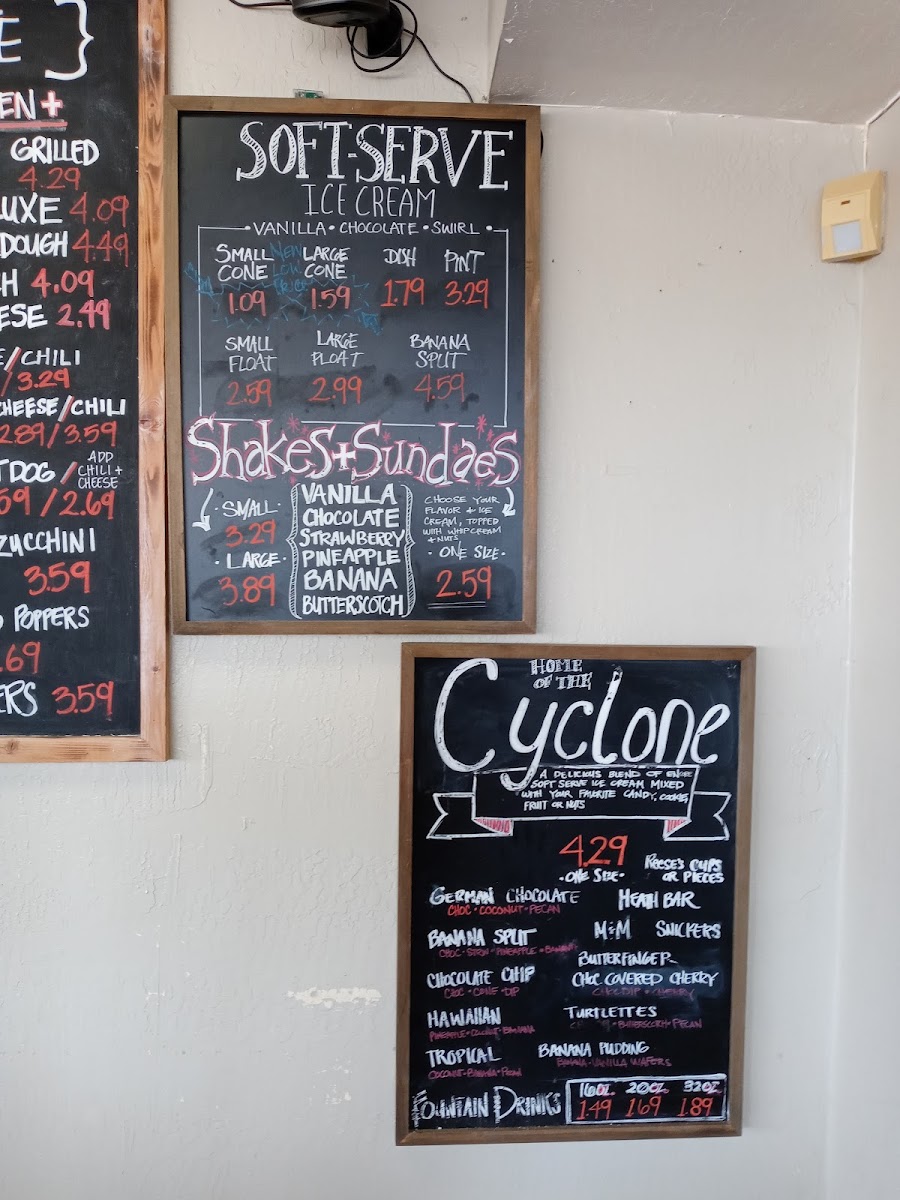 E }
EN +
GRILLED
4.29
LUXE 4.09
DOUGH 4.49
H 4.09
ESE 2.49
E/CHILI
/3.29
CHEESE/CHILI
2.89/3.59
T DOG / ADD CHILI + CHEESE
59/2.69
ZUCCHINI
3.59
POPPERS
.69
ERS 3.59
SOFT-SERVE
ICE CREAM
VANILLA • CHOCOLATE • SWIRL
SMALL CONE 1.09
NEW LOW PRICE
LARGE CONE 1.59
DISH 1.79
PINT 3.29
SMALL FLOAT 2.59
LARGE FLOAT 2.99
BANANA SPLIT 4.59
Shakes + Sundaes
• SMALL •
3.29
• LARGE •
3.89
VANILLA
CHOCOLATE
STRAWBERRY
PINEAPPLE
BANANA
BUTTERSCOTCH
CHOOSE YOUR
FLAVOR + ICE
CREAM, TOPPED
WITH WHIP CREAM
+ NUTS
• ONE SIZE •
2.59
HOME
OF THE
Cyclone
A DELICIOUS BLEND OF
SOFT SERVE ICE CREAM MIXED
WITH YOUR FAVORITE CANDY, COOKIE,
FRUIT OR NUTS
4.29
• ONE SIZE •
REESE'S CUPS
OR PIECES
GERMAN CHOCOLATE
CHOC • COCONUT • PECAN
HEATH BAR
M&M SNICKERS
BANANA SPLIT
CHOC • STRAW • PINEAPPLE • BANANA
BUTTERFINGER
CHOCOLATE CHIP
CHOC • CONE • DIP
CHOC COVERED CHERRY
CHOC DIP • CHERRY
HAWAIIAN
PINEAPPLE • COCONUT • BANANA
TURTLETTES
BUTTERSCOTCH • PECAN
TROPICAL
COCONUT • BANANA • PECAN
BANANA PUDDING
BANANA • VANILLA WAFERS
FOUNTAIN DRINKS
16OZ. 20OZ. 32OZ.
1.49 1.69 1.89